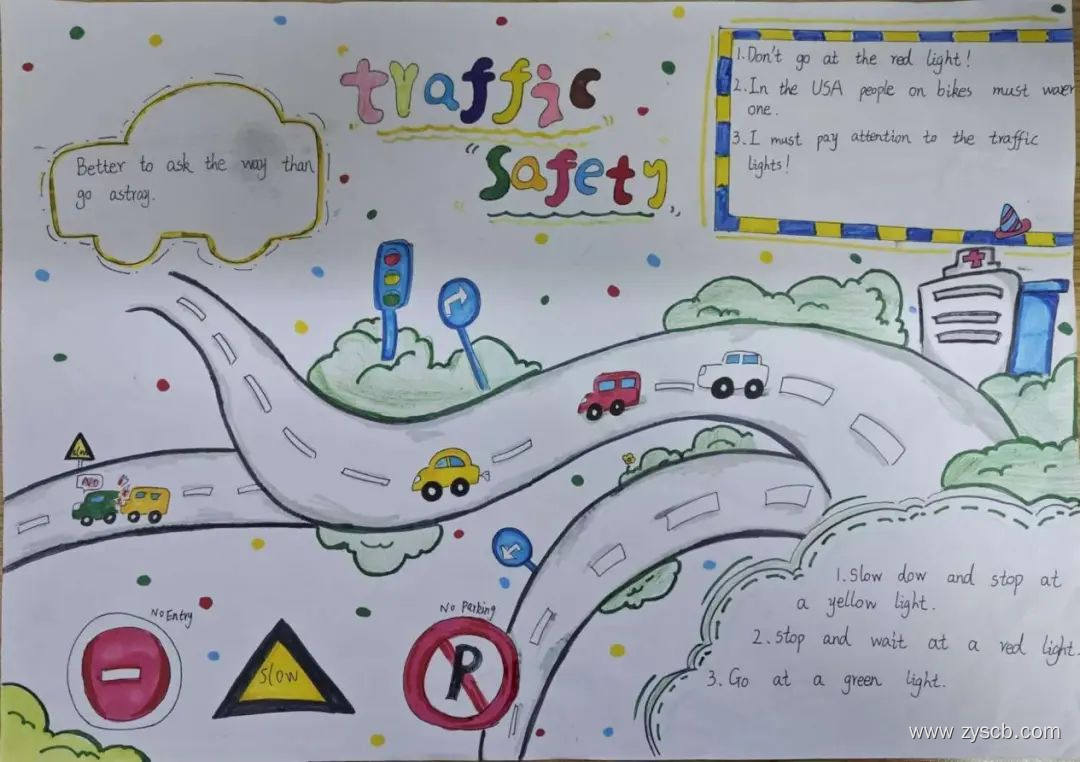 traffic
"Safety"
Better to ask the way than
go astray.
1. Don't go at the red light!
2. In the USA people on bikes must waer
one.
3. I must pay attention to the traffic
lights!
slow
No Entry
slow
No Parking
P
1. Slow dow and stop at
a yellow light.
2. stop and wait at a red light.
3. Go at a green light.
www.zyscb.com